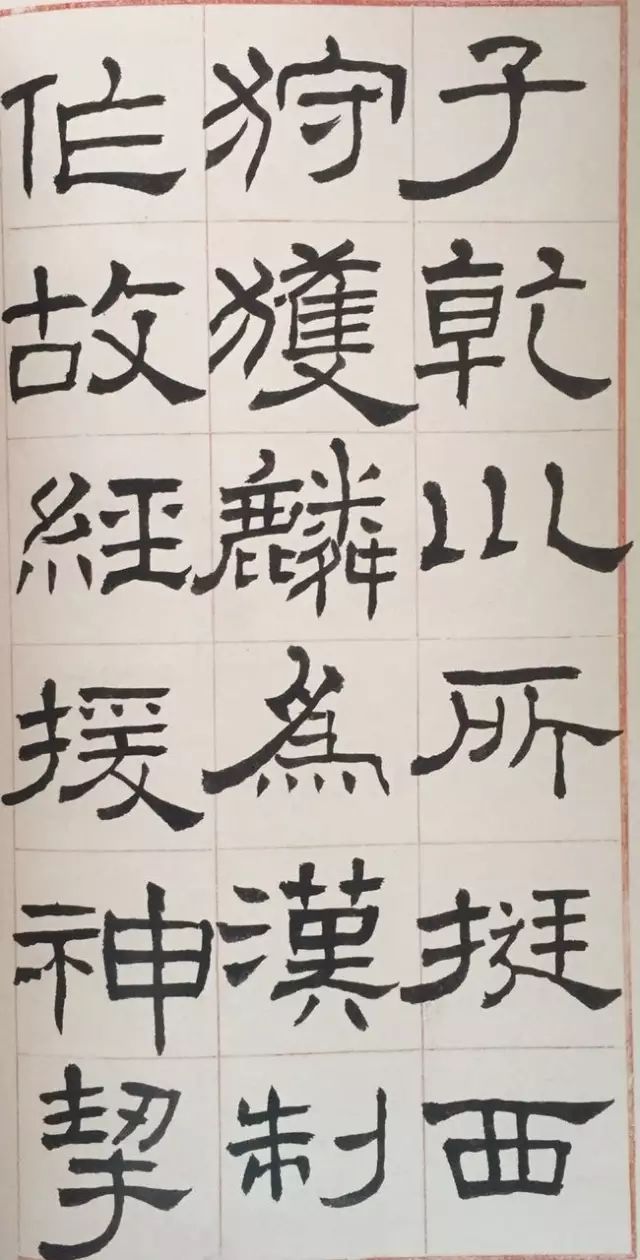 子乾川所挺西
狩獲麟為漢制
作故經援神挈